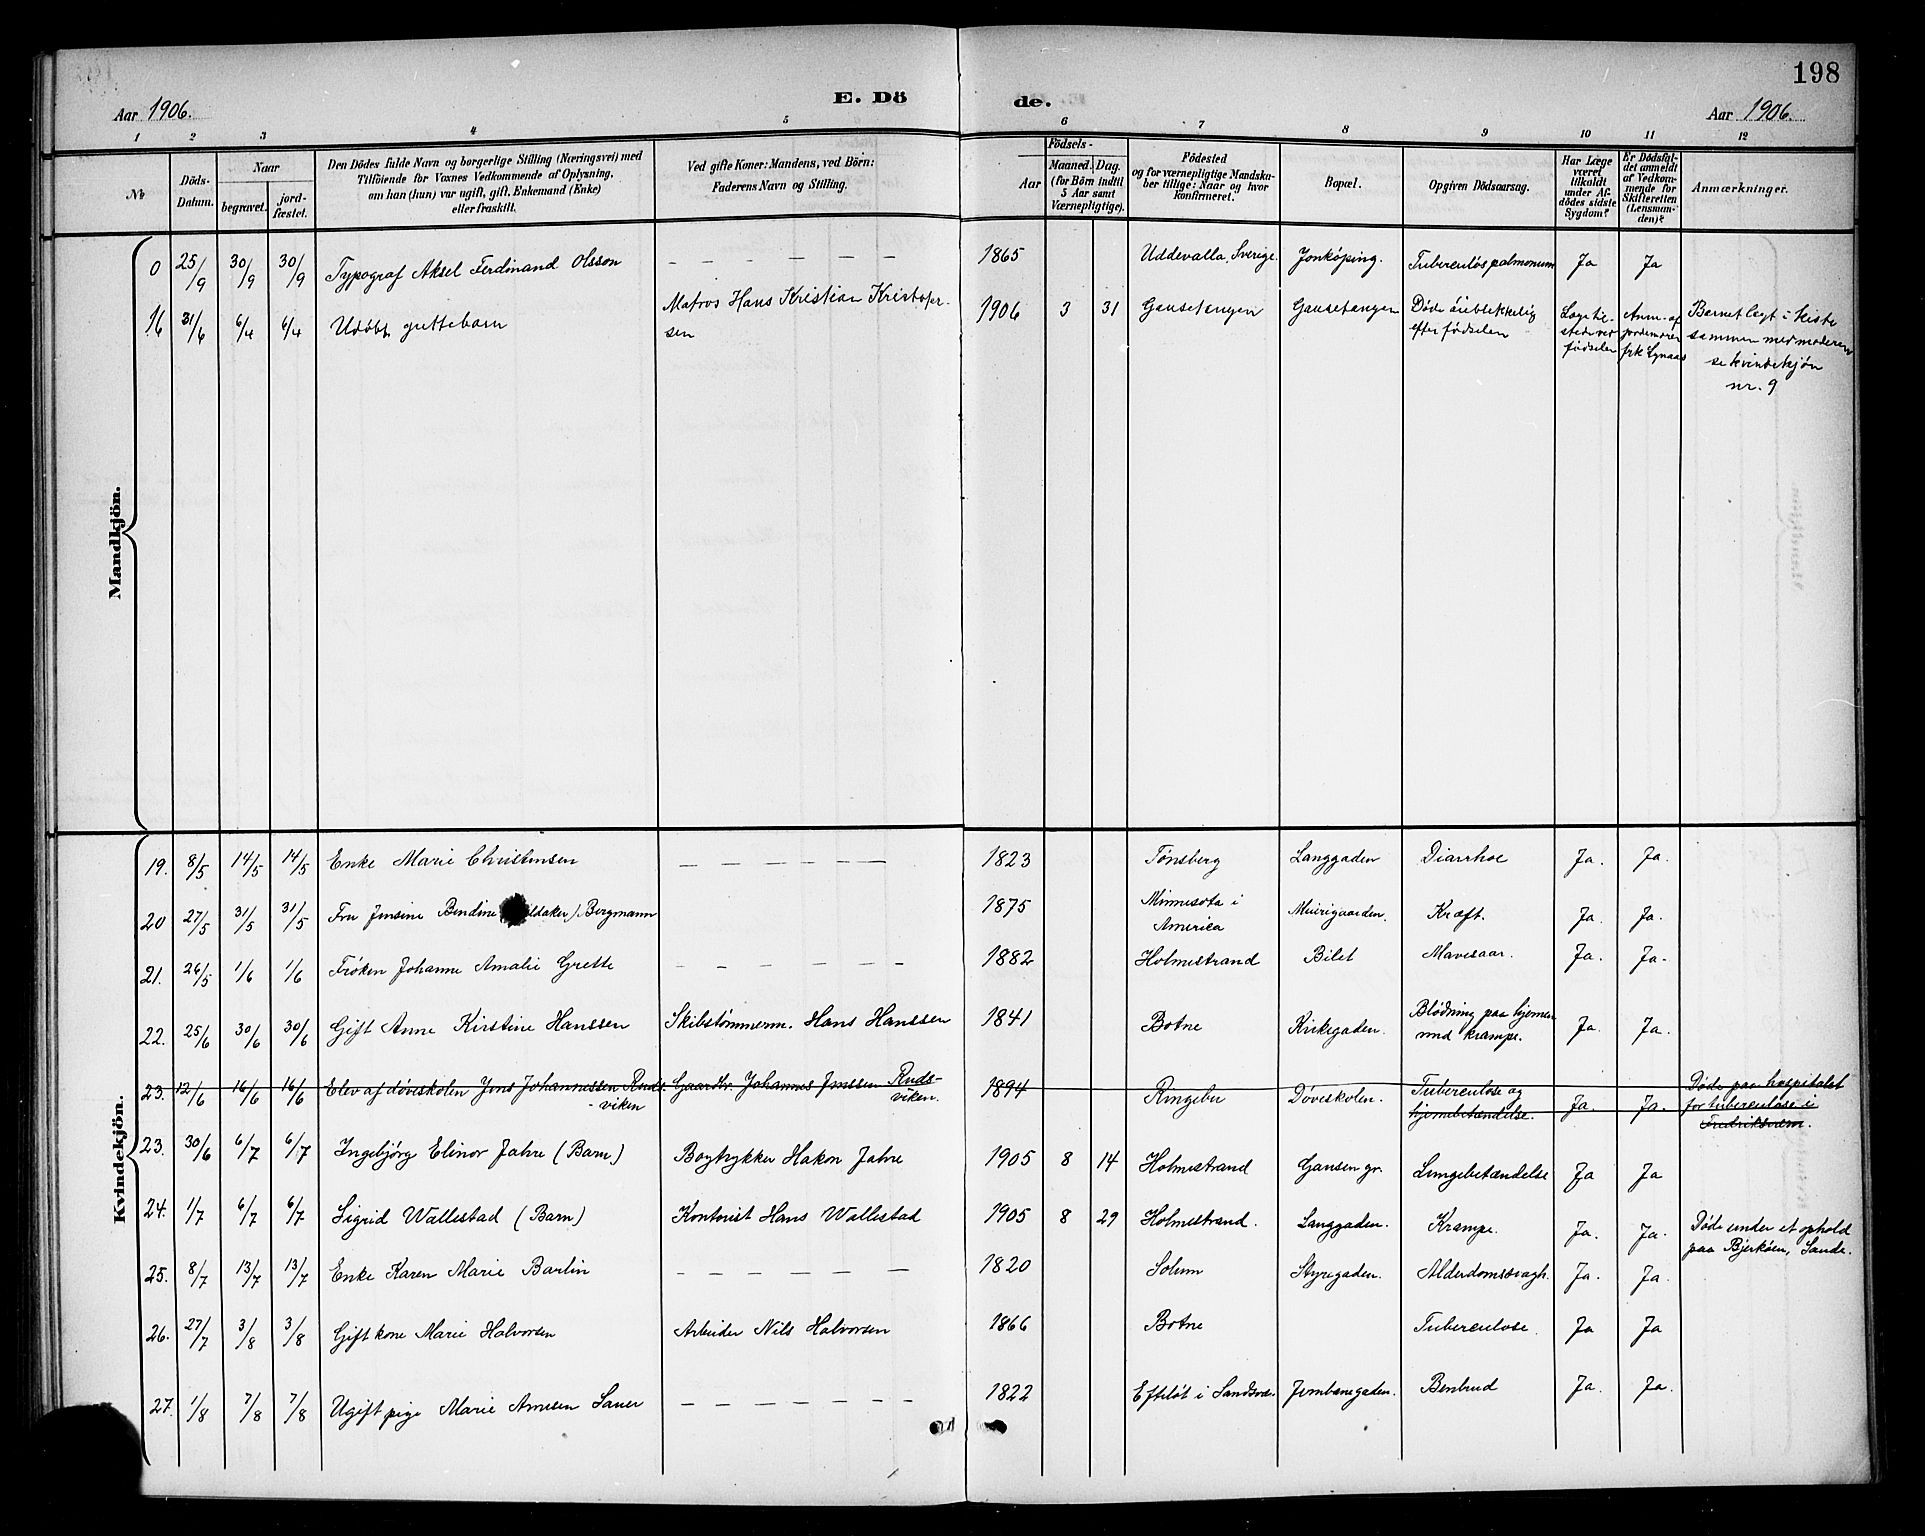 198
Aar 1906.
E. Dö
de.
Aar 1906.
1 2 3 4 5 6 7 8 9 10 11 12
No
Döds-Datum.
Naar
begravet.
jord-fæstet.
Den Dödes fulde Navn og borgerlige Stilling (Næringsvei) med
Tilföiende for Voxnes Vedkommende af Oplysning,
om han (hun) var ugift, gift, Enkemand (Enke)
eller fraskilt.
Ved gifte Koner: Mandens, ved Börn:
Faderens Navn og Stilling.
Födsels-
Aar
Maaned. Dag.
(for Börn indtil
5 Aar samt
Værnepligtige).
Födested
og for værnepligtige Mandska-
ber tillige: Naar og hvor
konfirmeret.
Bopæl.
Opgiven Dödsaarsag.
Har Læge
været
tilkaldt
under Af-
dödes sidste
Sygdom?
Er Dödsfal-
det anmeldt
af Vedkom-
mende for
Skifteretten
(Lensman-
den)?
Anmærkninger.
Mandkjön.
0 25/9 30/9 30/9 Typograf Aksel Ferdinand Olsson – – – – – – 1865 Uddevalla, Sverige. Jonköping. Tuberculos pulmonum Ja Ja
16 31/6 6/4 6/4 Udöbt guttebarn Matros Hans Kristian Kristofer-
sen 1906 3 31 Gausetangen Gausetangen Døde øieblikkelig
efter fødselen Læge til-
stede ved
fødselen Anm. af
jordemoren
frk Lynaas Barnet lagt i kiste
sammen med moderen
se kvindekjøn
nr. 9
Kvindekjön.
19. 8/5 14/5 14/5 Enke Marie Christensen – – – – – – 1823 Tønsberg Langgaden Diarrhoe Ja. Ja.
20 27/5 31/5 31/5 Fru Jensine Bendine ldaker) Bergmann 1875 Minnesota i
America Meierigaarden. Kræft. Ja. Ja.
21. 26/5 1/6 1/6 Frøken Johanne Amalie Grette – – – – – – 1882 Holmestrand Bilet Mavesaar. Ja. Ja.
22. 25/6 30/6 30/6 Gift Anne Kirstine Hanssen Skibstømmerm. Hans Hanssen 1841 Botne Kirkegaden. Blødning paa hjernen
med krampe. Ja. Ja.
23. 12/6 16/6 16/6 Elev af døveskolen Jens Johannessen Ruds-
viken Gaardbr. Johannes Jenssen Ruds-
viken. 1894 Ringebu Døveskolen. Tuberculose og
hjernebetændelse. Ja. Ja. Døde paa hospitalet
for tuberculose i
Fredriksværn.
23. 30/6 6/7 6/7 Ingebjørg Elinor Jahre (Barn) Bogtrykker Hakon Jahre 1905 8 14 Holmestrand Gausen gr. Lungebetændelse Ja Ja
24. 1/7 6/7 6/7 Sigrid Wallestad (Barn) Kontorist Hans Wallestad 1905 8 29 Holmestrand. Langgaden. Krampe. Ja. Ja. Døde under et ophold
paa Bjerkøen, Sande.
25. 8/7 13/7 13/7 Enke Karen Marie Barlin – – – – – – 1820 Solum Styregaden. Alderdomssvagh. Ja. Ja.
26. 27/7 3/8 3/8 Gift kone Marie Halvorsen Arbeider Nils Halvorsen 1866 Botne Tuberculose. Ja Ja
27. 1/8 7/8 7/8 Ugift pige Marie Amesen Sauer – – – – – – 1822 Efteløt i Sandsvær. Jernbanegaden. Benbrud Ja. Ja.